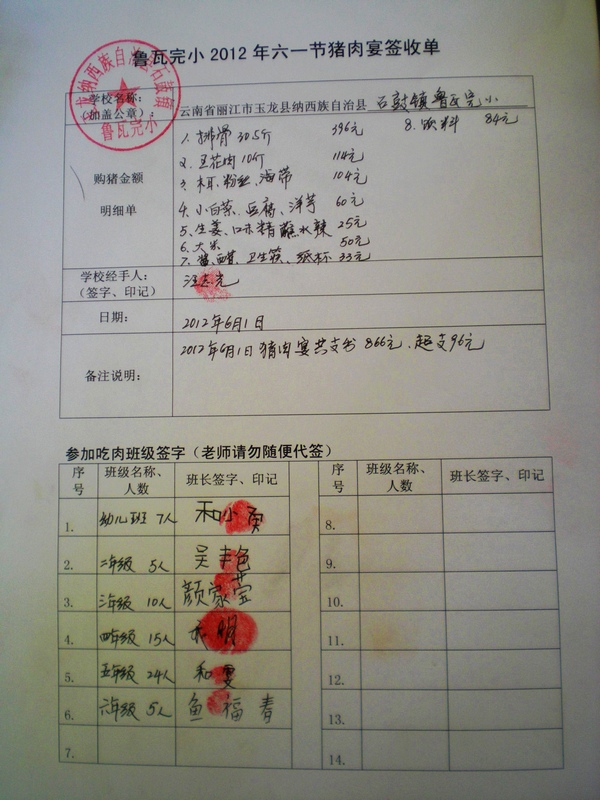 鲁瓦完小2012年六一节猪肉宴签收单
学校名称:
(加盖公章):
云南省丽江市玉龙县纳西族自治县 石鼓镇鲁瓦完小
鲁瓦完小
购猪金额
明细单
1. 排骨 30.5斤 396元 8. 饮料 84元
2. 五花肉 10斤 114元
3. 木耳、粉丝、海带 104元
4. 小白菜、豆腐、洋芋 60元
5. 生姜、味精 蘸水辣 25元
6. 大米 50元
7. 酱、醋、卫生筷、纸杯 33元
学校经手人:
(签字、印记)
汪志光
日期:
2012年6月1日
备注说明:
2012年6月1日猪肉宴共支出866元、超支96元
参加吃肉班级签字(老师请勿随便代签)
序号 班级名称、人数 班长签字、印记 序号 班级名称、人数 班长签字、印记
1. 幼儿班 7人 和小勇 8.
2. 二年级 5人 吴丰色 9.
3. 三年级 10人 颜家莹 10.
4. 四年级 15人 明 11.
5. 五年级 24人 和雯 12.
6. 六年级 5人 鱼福春 13.
7. 14.